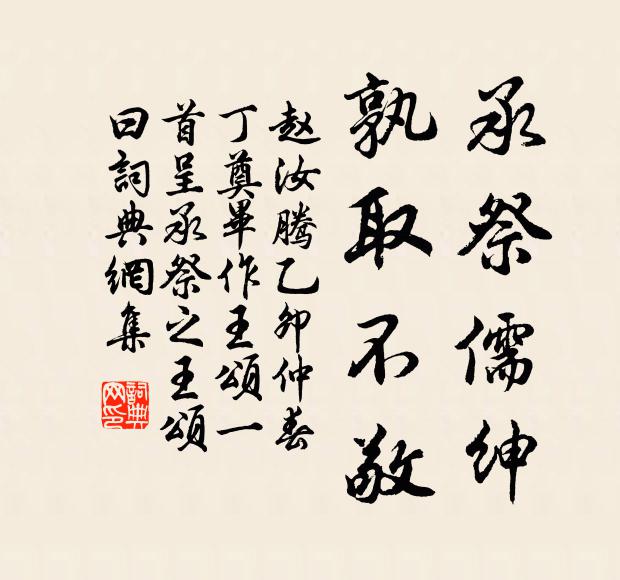 承祭儒绅
孰取不敬
赵汝腾乙卯仲春
丁奠畢作王頌一
首呈承祭之王頌
曰詞典網集
詞典
网印